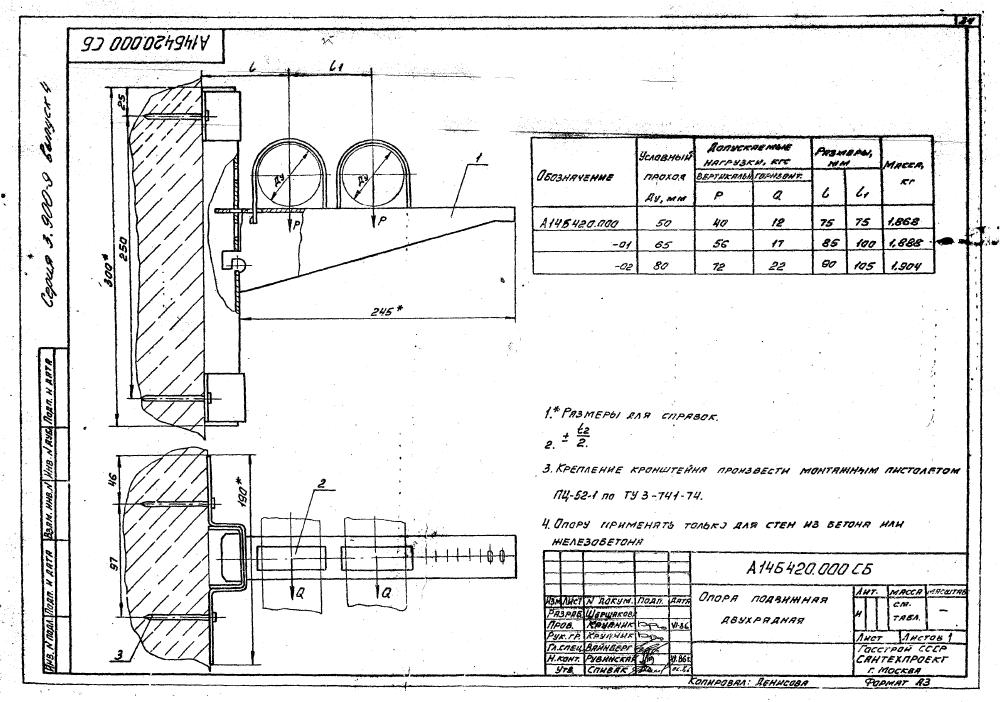 24
А14Б420.000 СБ
Серия 3.900-9 Выпуск 4
l l1
25
250
300*
Ду Ду
Р Р
1
245*
Обозначение Условный проход Ду, мм Допускаемые нагрузки, кгс Размеры, мм Масса, кг
вертикальн. горизонт.
Р Q l l1
А14Б420.000 50 40 12 75 75 1,868
-01 65 56 17 85 100 1,888
-02 80 72 22 90 105 1,904
1.* Размеры для справок.
2. ± t2/2.
3. Крепление кронштейна произвести монтажным пистолетом
ПЦ-52-1 по ТУ 3-741-74.
4. Опору применять только для стен из бетона или
железобетона
46
97
190*
2
Q Q
3
Инв. N подл. Подп. и дата Взам. инв. N Инв. N дубл. Подп. и дата
А14Б420.000 СБ
Изм. Лист N докум. Подп. Дата
Разраб. Шершакова
Пров. Крупник VI-86
Рук. гр. Крупник
Гл. спец. Вайнберг
Н. конт. Рубинская
Утв. Спивак
Опора подвижная
двухрядная
Лит. Масса Масштаб
И см. табл. –
Лист Листов 1
Госстрой СССР
Сантехпроект
г. Москва
Копировал: Денисова Формат А3